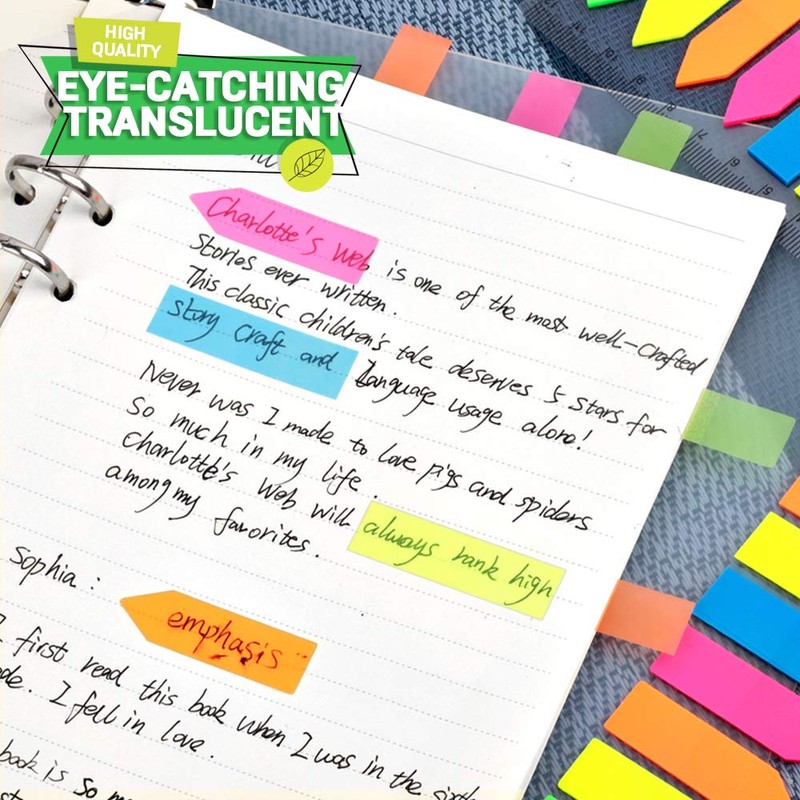 HIGH
QUALITY
EYE-CATCHING
TRANSLUCENT
Charlotte's Web is one of the most well-crafted
Stories ever written.
This classic children's tale deserves 5 stars for
story craft and Language usage alone!
Never was I made to love pigs and spiders
So much in my life.
Charlotte's Web will always rank high
among my favorites.
Sophia:
emphasis
I first read this book when I was in the sixth
I fell in love.
book is so